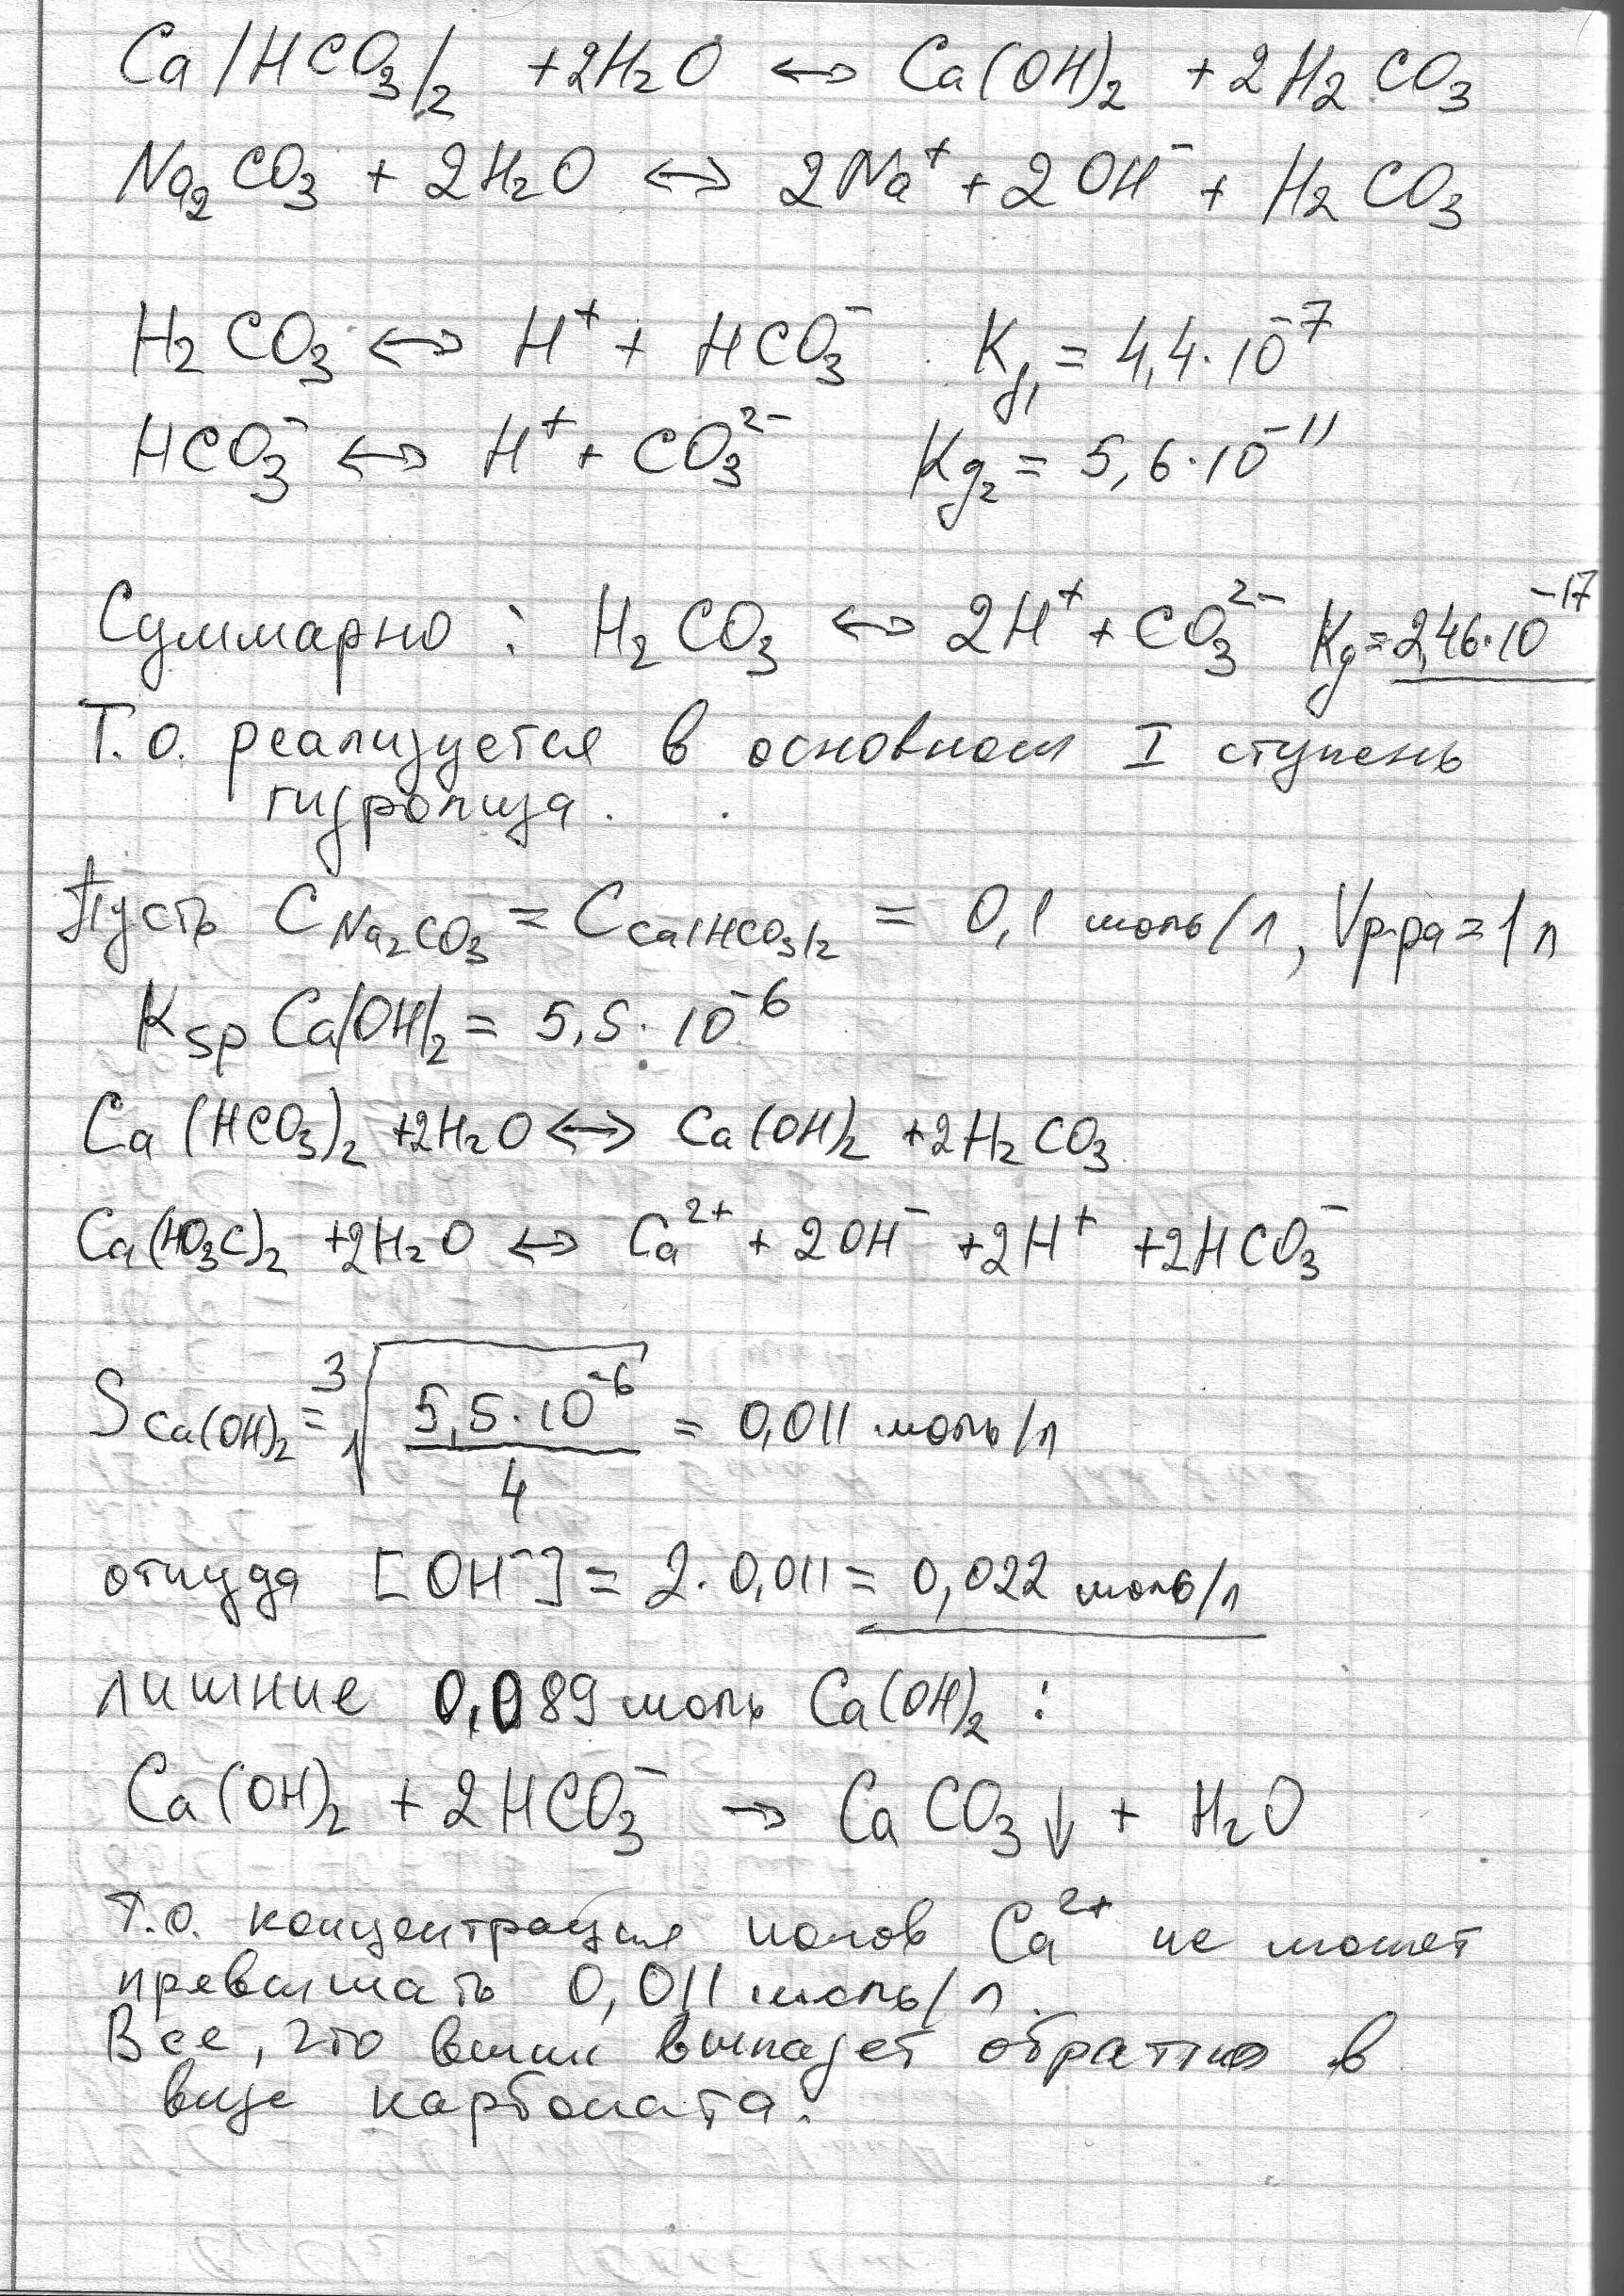 Ca(HCO₃)₂ + 2H₂O ↔ Ca(OH)₂ + 2H₂CO₃
Na₂CO₃ + 2H₂O ↔ 2Na⁺ + 2OH⁻ + H₂CO₃
H₂CO₃ ↔ H⁺ + HCO₃⁻ Kд₁ = 4,4·10⁻⁷
HCO₃⁻ ↔ H⁺ + CO₃²⁻ Kд₂ = 5,6·10⁻¹¹
Суммарно: H₂CO₃ ↔ 2H⁺ + CO₃²⁻ Kд = 2,46·10⁻¹⁷
Т.о. реализуется в основном I ступень
гидролиза.
Пусть C Na₂CO₃ = C Ca(HCO₃)₂ = 0,1 моль/л, Vр-ра = 1 л
Ksp Ca(OH)₂ = 5,5·10⁻⁶
Ca(HCO₃)₂ + 2H₂O ↔ Ca(OH)₂ + 2H₂CO₃
Ca(HO₃C)₂ + 2H₂O ↔ Ca²⁺ + 2OH⁻ + 2H⁺ + 2HCO₃⁻
S Ca(OH)₂ = ³√(5,5·10⁻⁶ / 4) = 0,011 моль/л
откуда [OH⁻] = 2·0,011 = 0,022 моль/л
лишние 0,089 моль Ca(OH)₂ :
Ca(OH)₂ + 2HCO₃⁻ → CaCO₃↓ + H₂O
Т.о. концентрация ионов Ca²⁺ не может
превышать 0,011 моль/л.
Все, что выше выпадет обратно в
виде карбоната.